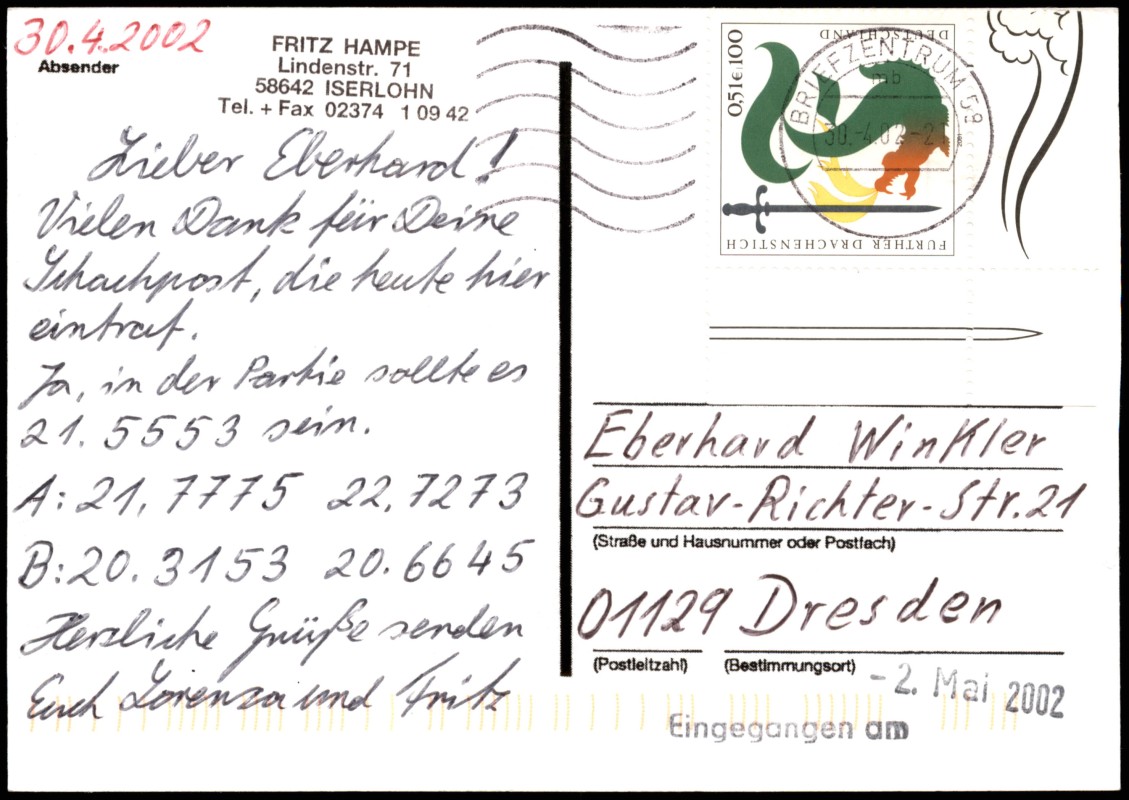 30.4.2002
Absender
FRITZ HAMPE
Lindenstr. 71
58642 ISERLOHN
Tel. + Fax 02374 1 09 42
Lieber Eberhard!
Vielen Dank für Deine
Schachpost, die heute hier
eintraf.
Ja, in der Partie sollte es
21. 5553 sein.
A: 21. 7775 22. 7273
B: 20. 3153 20. 6645
Herzliche Grüße senden
Euch Lorenza und Fritz
DEUTSCHLAND
0,51€ 100
FURTHER DRACHENSTICH
BRIEFZENTRUM 58
mb
30.-4.02-21
Eberhard Winkler
Gustav-Richter-Str. 21
(Straße und Hausnummer oder Postfach)
01129 Dresden
(Postleitzahl) (Bestimmungsort)
- 2. Mai 2002
Eingegangen am